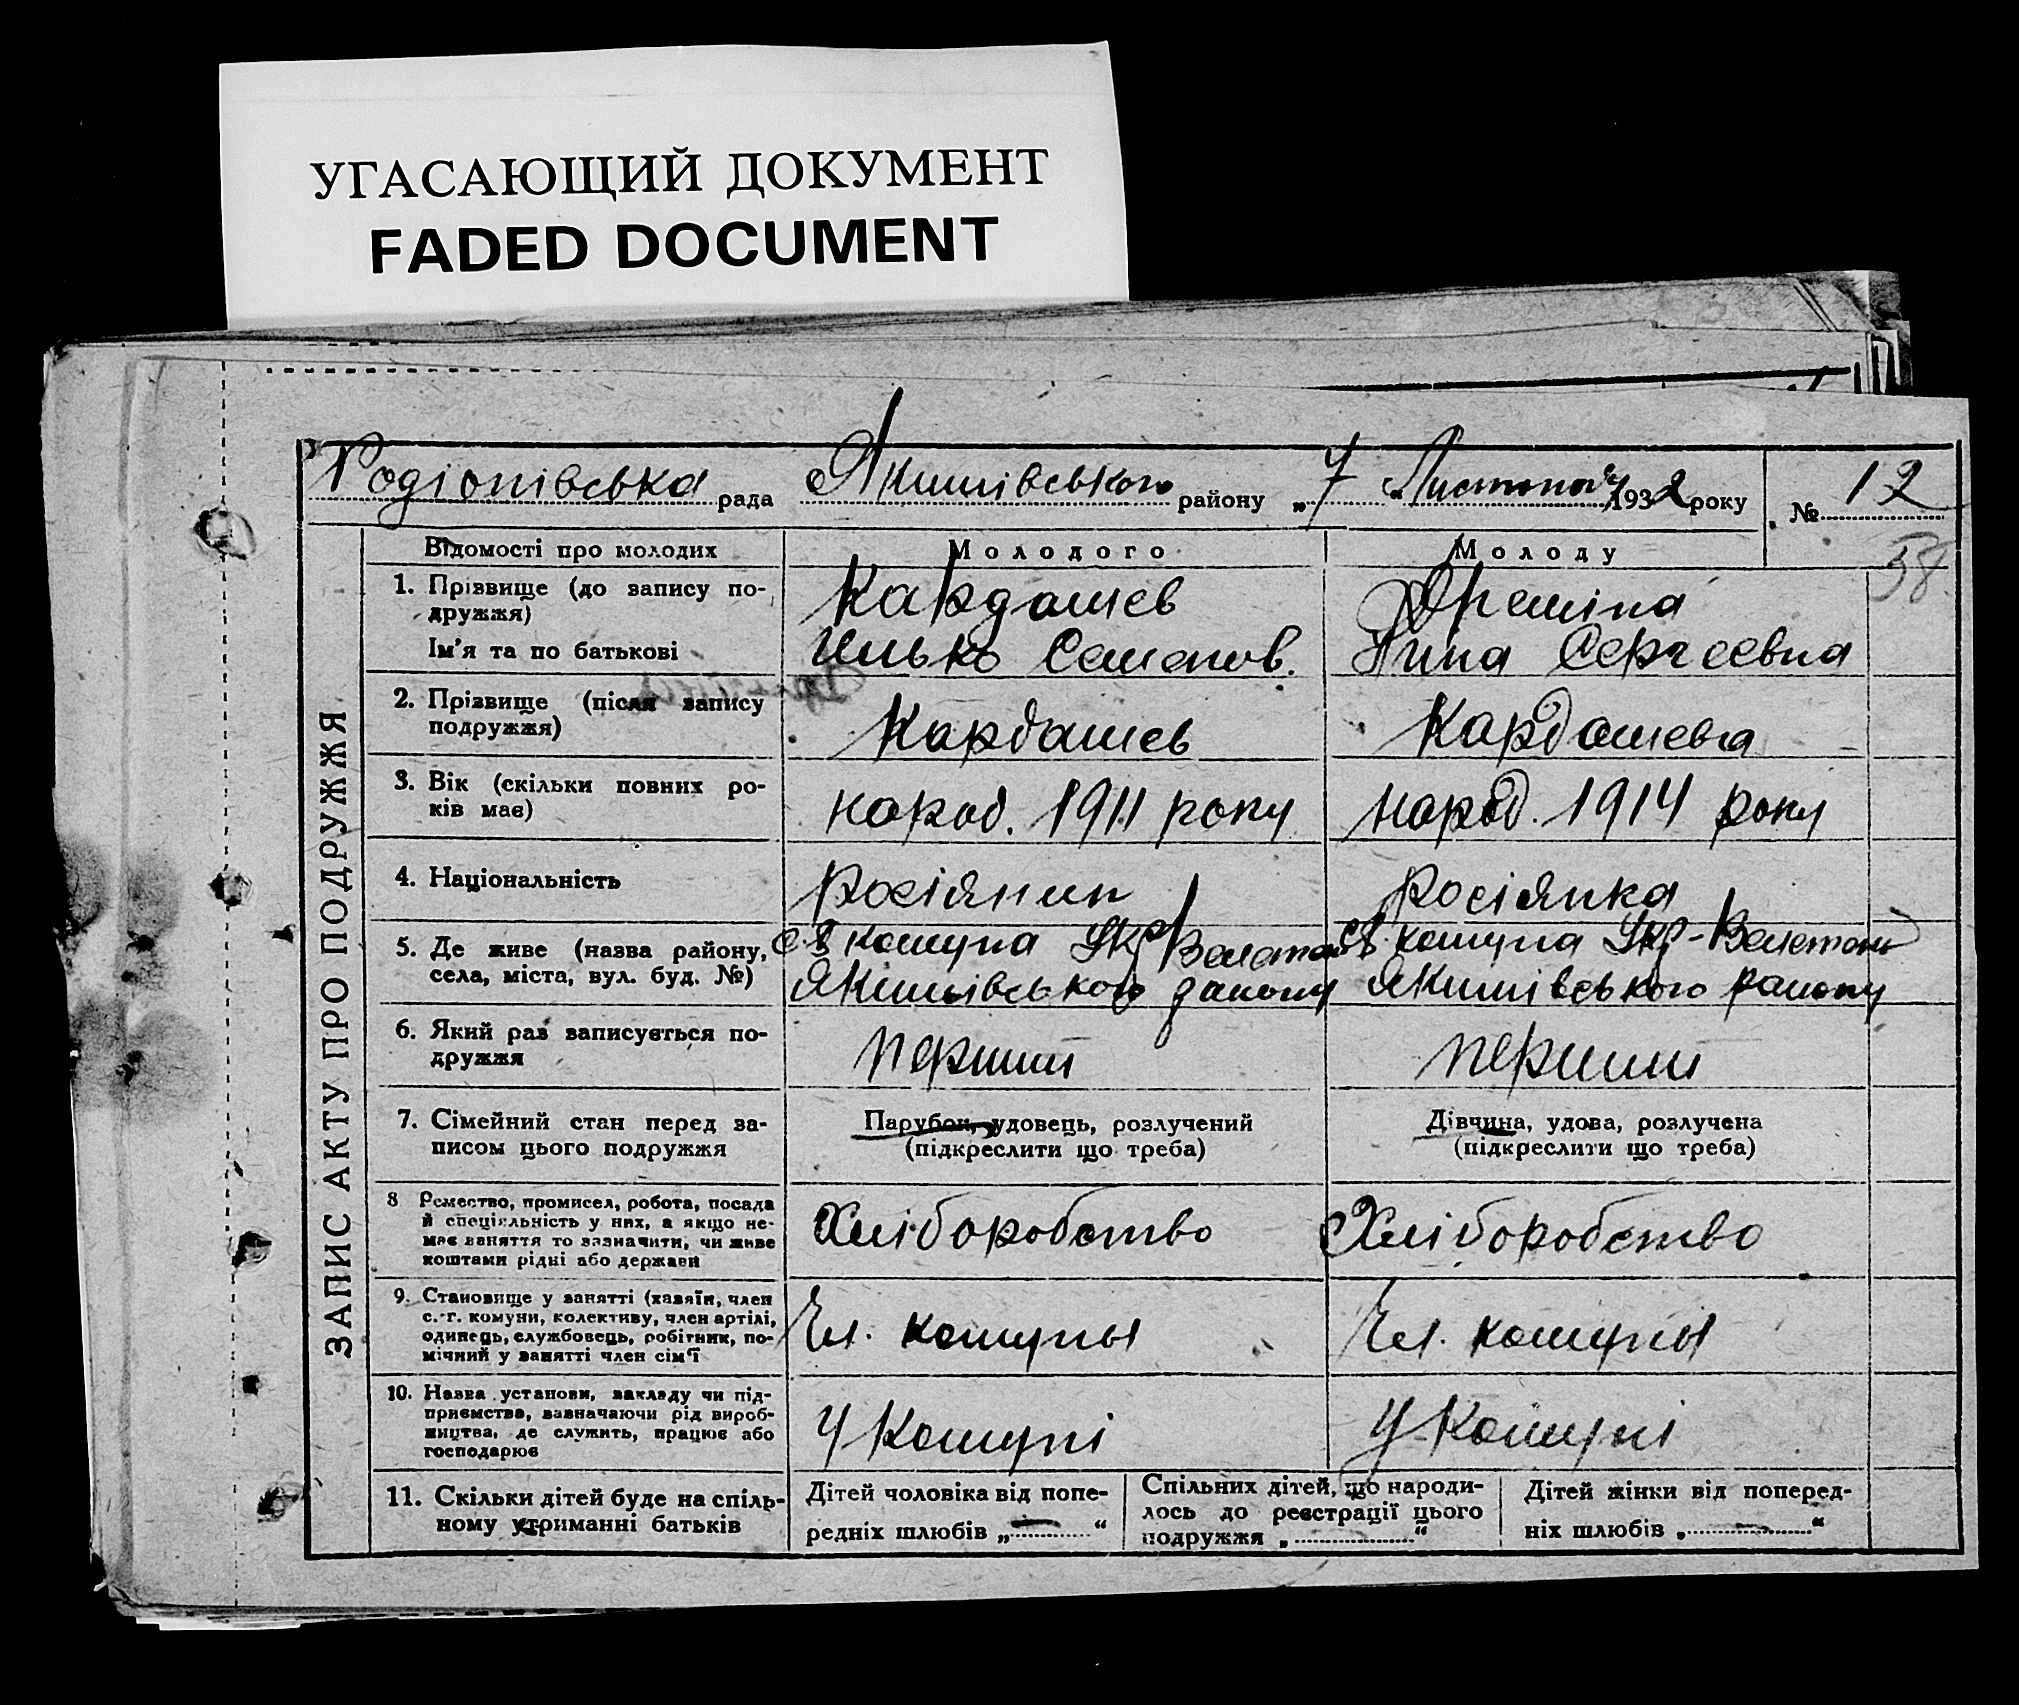 УГАСАЮЩИЙ ДОКУМЕНТ
FADED DOCUMENT
Родіонівська рада Якимівського району „7 Листопада 1932 року № 12
58
ЗАПИС АКТУ ПРО ПОДРУЖЖЯ
Відомості про молодих Молодого Молоду
1. Прізвище (до запису по-
дружжя) Кардашев
Ім'я та по батькові Илько Семенов. Нина Сергеевна
2. Прізвище (після запису
подружжя) Кардашев Кардашева
3. Вік (скільки повних ро-
ків має) народ. 1911 року народ. 1914 року
4. Національність росіянин росіянка
5. Де живе (назва району,
села, міста, вул. буд. №)
комуна комуна
Якимівського району Якимівського району
6. Який раз записується по-
дружжя перший перший
7. Сімейний стан перед за-
писом цього подружжя
Парубок, удовець, розлучений
(підкреслити що треба)
Дівчина, удова, розлучена
(підкреслити що треба)
8 Ремество, промисел, робота, посада
й спеціяльність у них, а якщо не-
має заняття то зазначити, чи живе
коштами рідні або держави
Хліборобство Хліборобство
9. Становище у занятті (хазяїн, член
с.-г. комуни, колективу, член артілі,
одинець, службовець, робітник, по-
мічний у занятті член сім'ї
Чл. комуны Чл. комуны
10. Назва установи, закладу чи під-
приємства, зазначаючи рід вироб-
ництва, де служить, працює або
господарює
У Комуні У Комуні
11. Скільки дітей буде на спіль-
ному утриманні батьків
Дітей чоловіка від попе-
редніх шлюбів „—“
Спільних дітей, що народи-
лось до реєстрації цього
подружжя „ “
Дітей жінки від поперед-
ніх шлюбів „—“